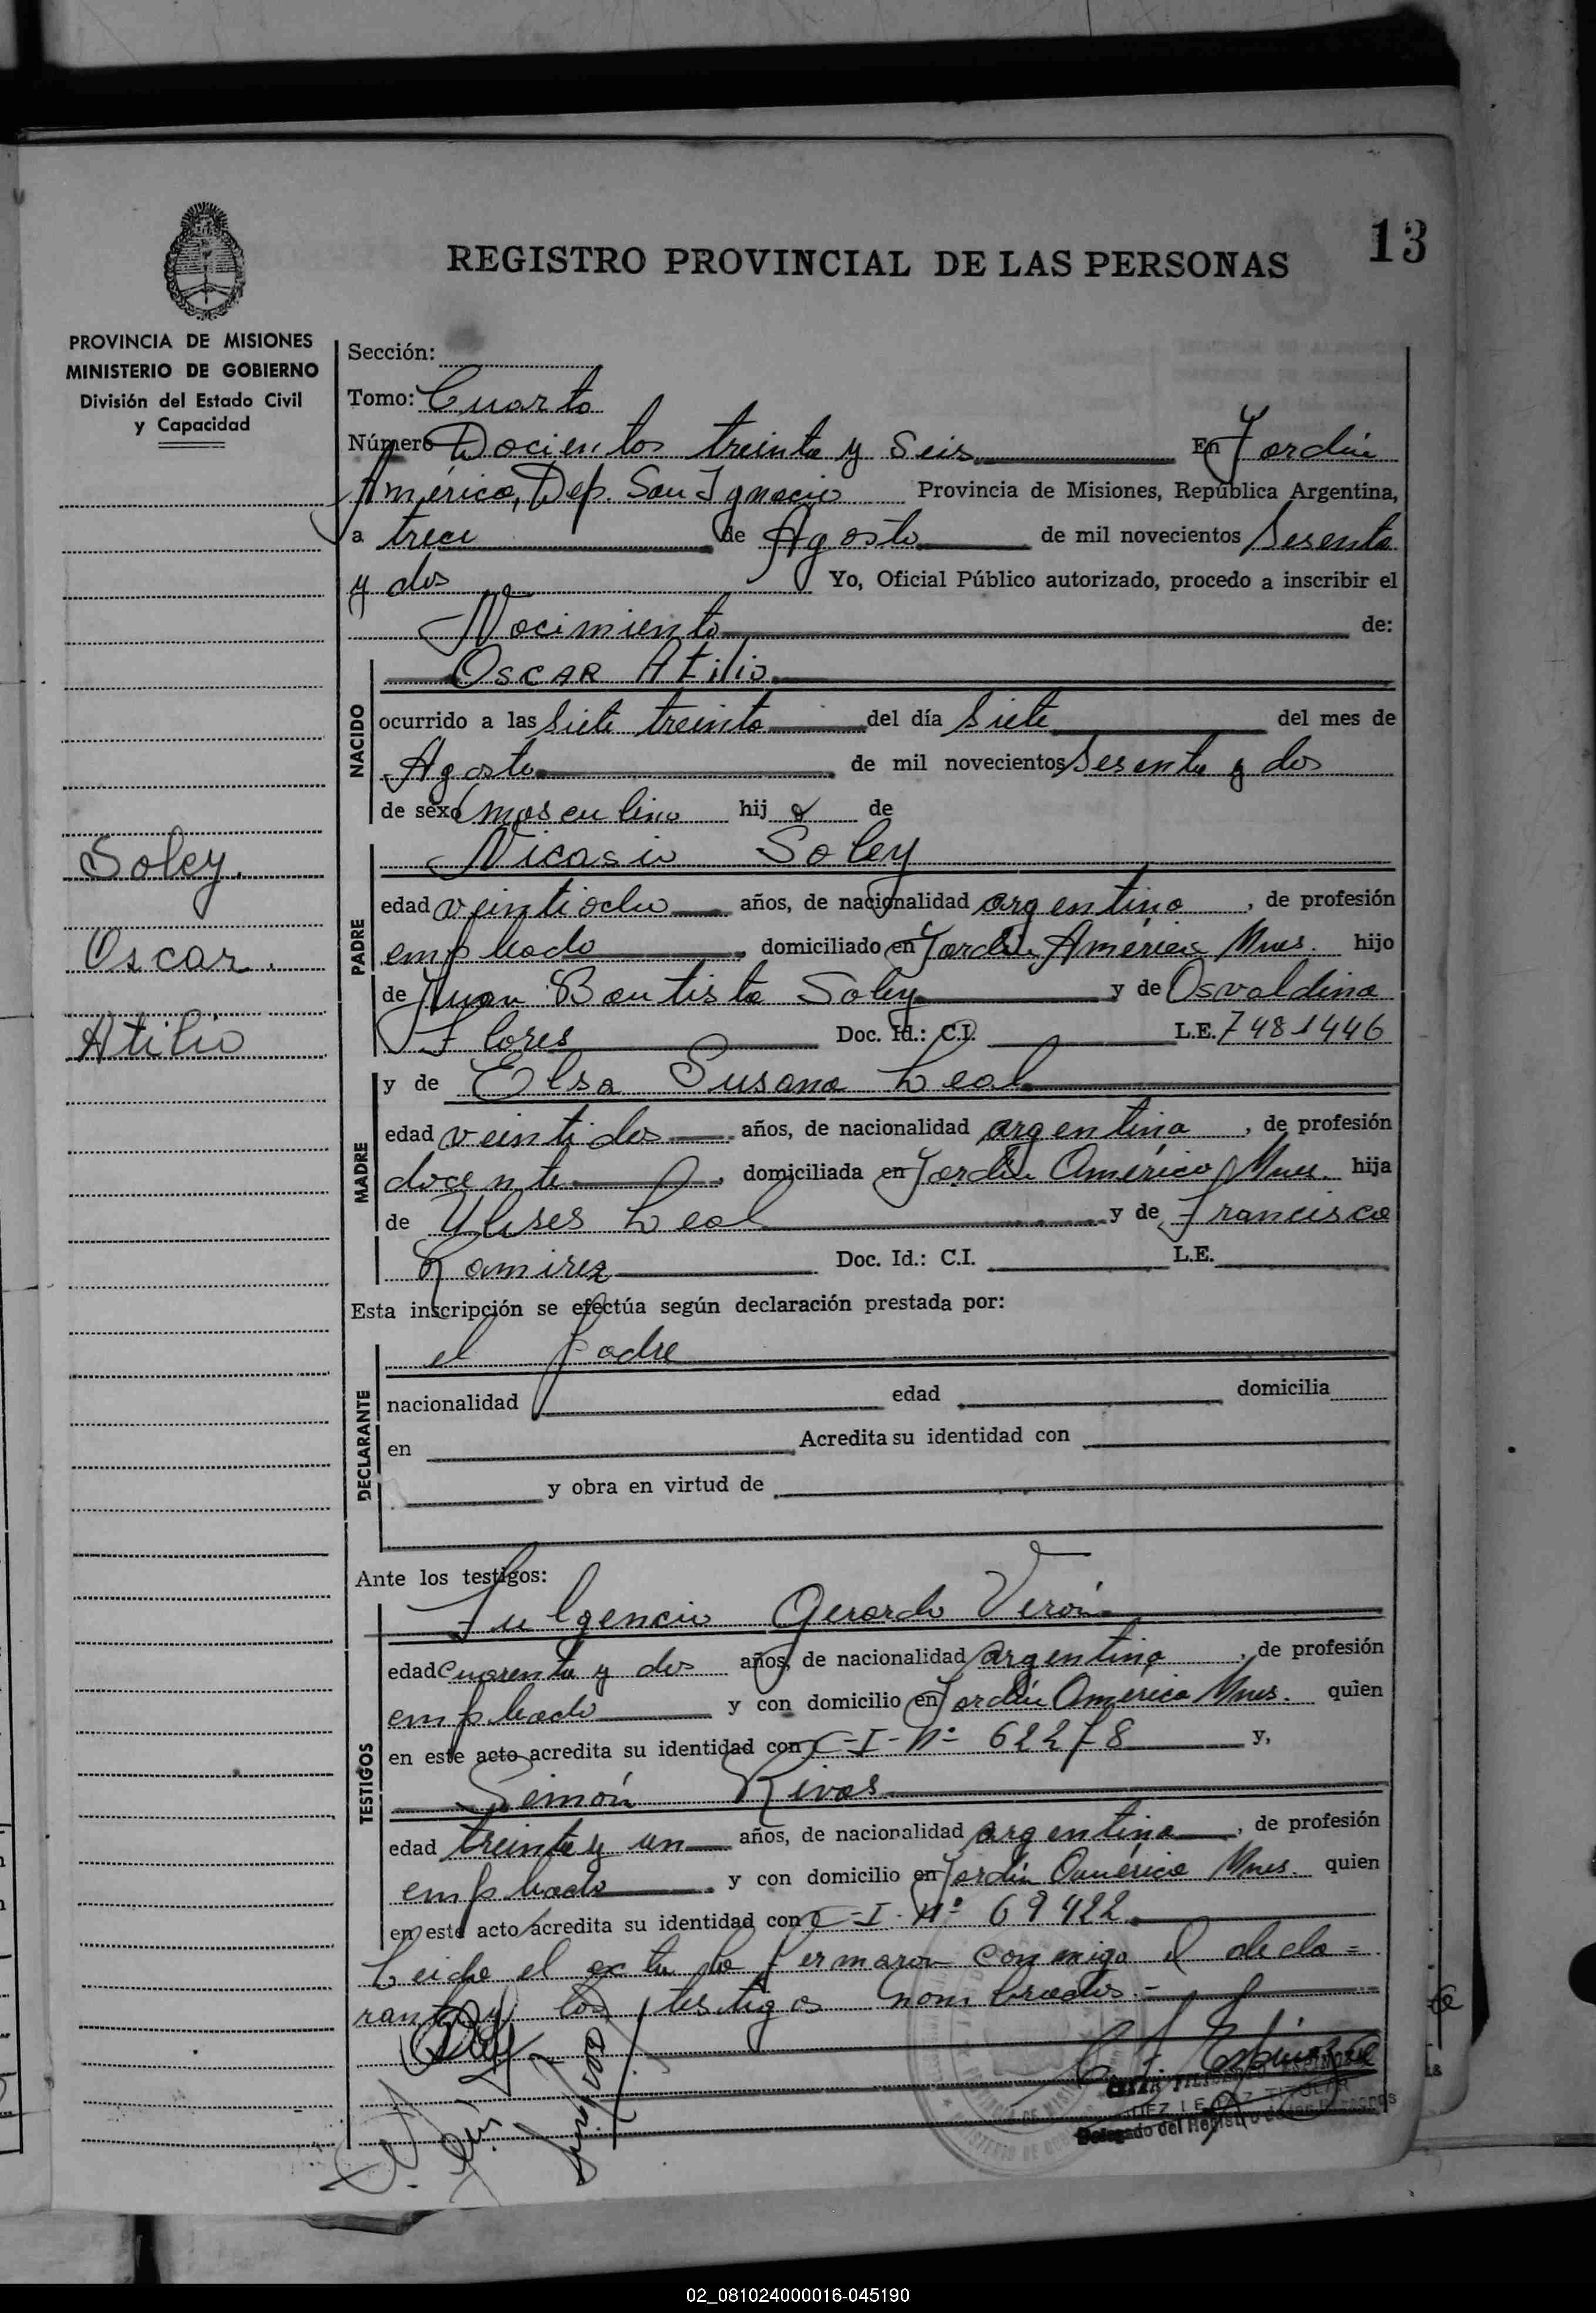 13
REGISTRO PROVINCIAL DE LAS PERSONAS
PROVINCIA DE MISIONES
MINISTERIO DE GOBIERNO
División del Estado Civil
y Capacidad
Soley.
Oscar.
Atilio
Sección:
Tomo: Cuarto
Número Docientos treinta y seis En Jardín
América, Dep. San Ignacio Provincia de Misiones, República Argentina,
a trece de Agosto de mil novecientos sesenta
y dos Yo, Oficial Público autorizado, procedo a inscribir el
Nacimiento de:
NACIDO
OSCAR Atilio
ocurrido a las siete treinta del día siete del mes de
Agosto de mil novecientos sesenta y dos
de sexo masculino hij o de
PADRE
Nicasio Soley
edad veintiocho años, de nacionalidad argentina, de profesión
empleado domiciliado en Jardín América Mnes. hijo
de Juan Bautista Soley y de Osvaldina
Flores Doc. Id.: C.I. L.E. 7481446
MADRE
y de Elsa Susana Leal
edad veintidos años, de nacionalidad argentina, de profesión
docente, domiciliada en Jardín América Mnes. hija
de Ulises Leal y de Francisca
Ramirez Doc. Id.: C.I. L.E.
Esta inscripción se efectúa según declaración prestada por:
DECLARANTE
el padre
nacionalidad edad domicilia
en Acredita su identidad con
y obra en virtud de
Ante los testigos:
TESTIGOS
Fulgencio Gerardo Verón
edad cuarenta y dos años, de nacionalidad argentina, de profesión
empleado y con domicilio en Jardín América Mnes. quien
en este acto acredita su identidad con C-I-Nº 62278 y,
Simón Rivas
edad treinta y un años, de nacionalidad argentina, de profesión
empleado y con domicilio en Jardín América Mnes. quien
en este acto acredita su identidad con C-I-Nº 69422
Leida el acta la fermaron conmigo el decla=
rante y los testigos nombrados.-
JUEZ DE PAZ TITULAR
Delegado del Registro de las Personas
02_081024000016-045190